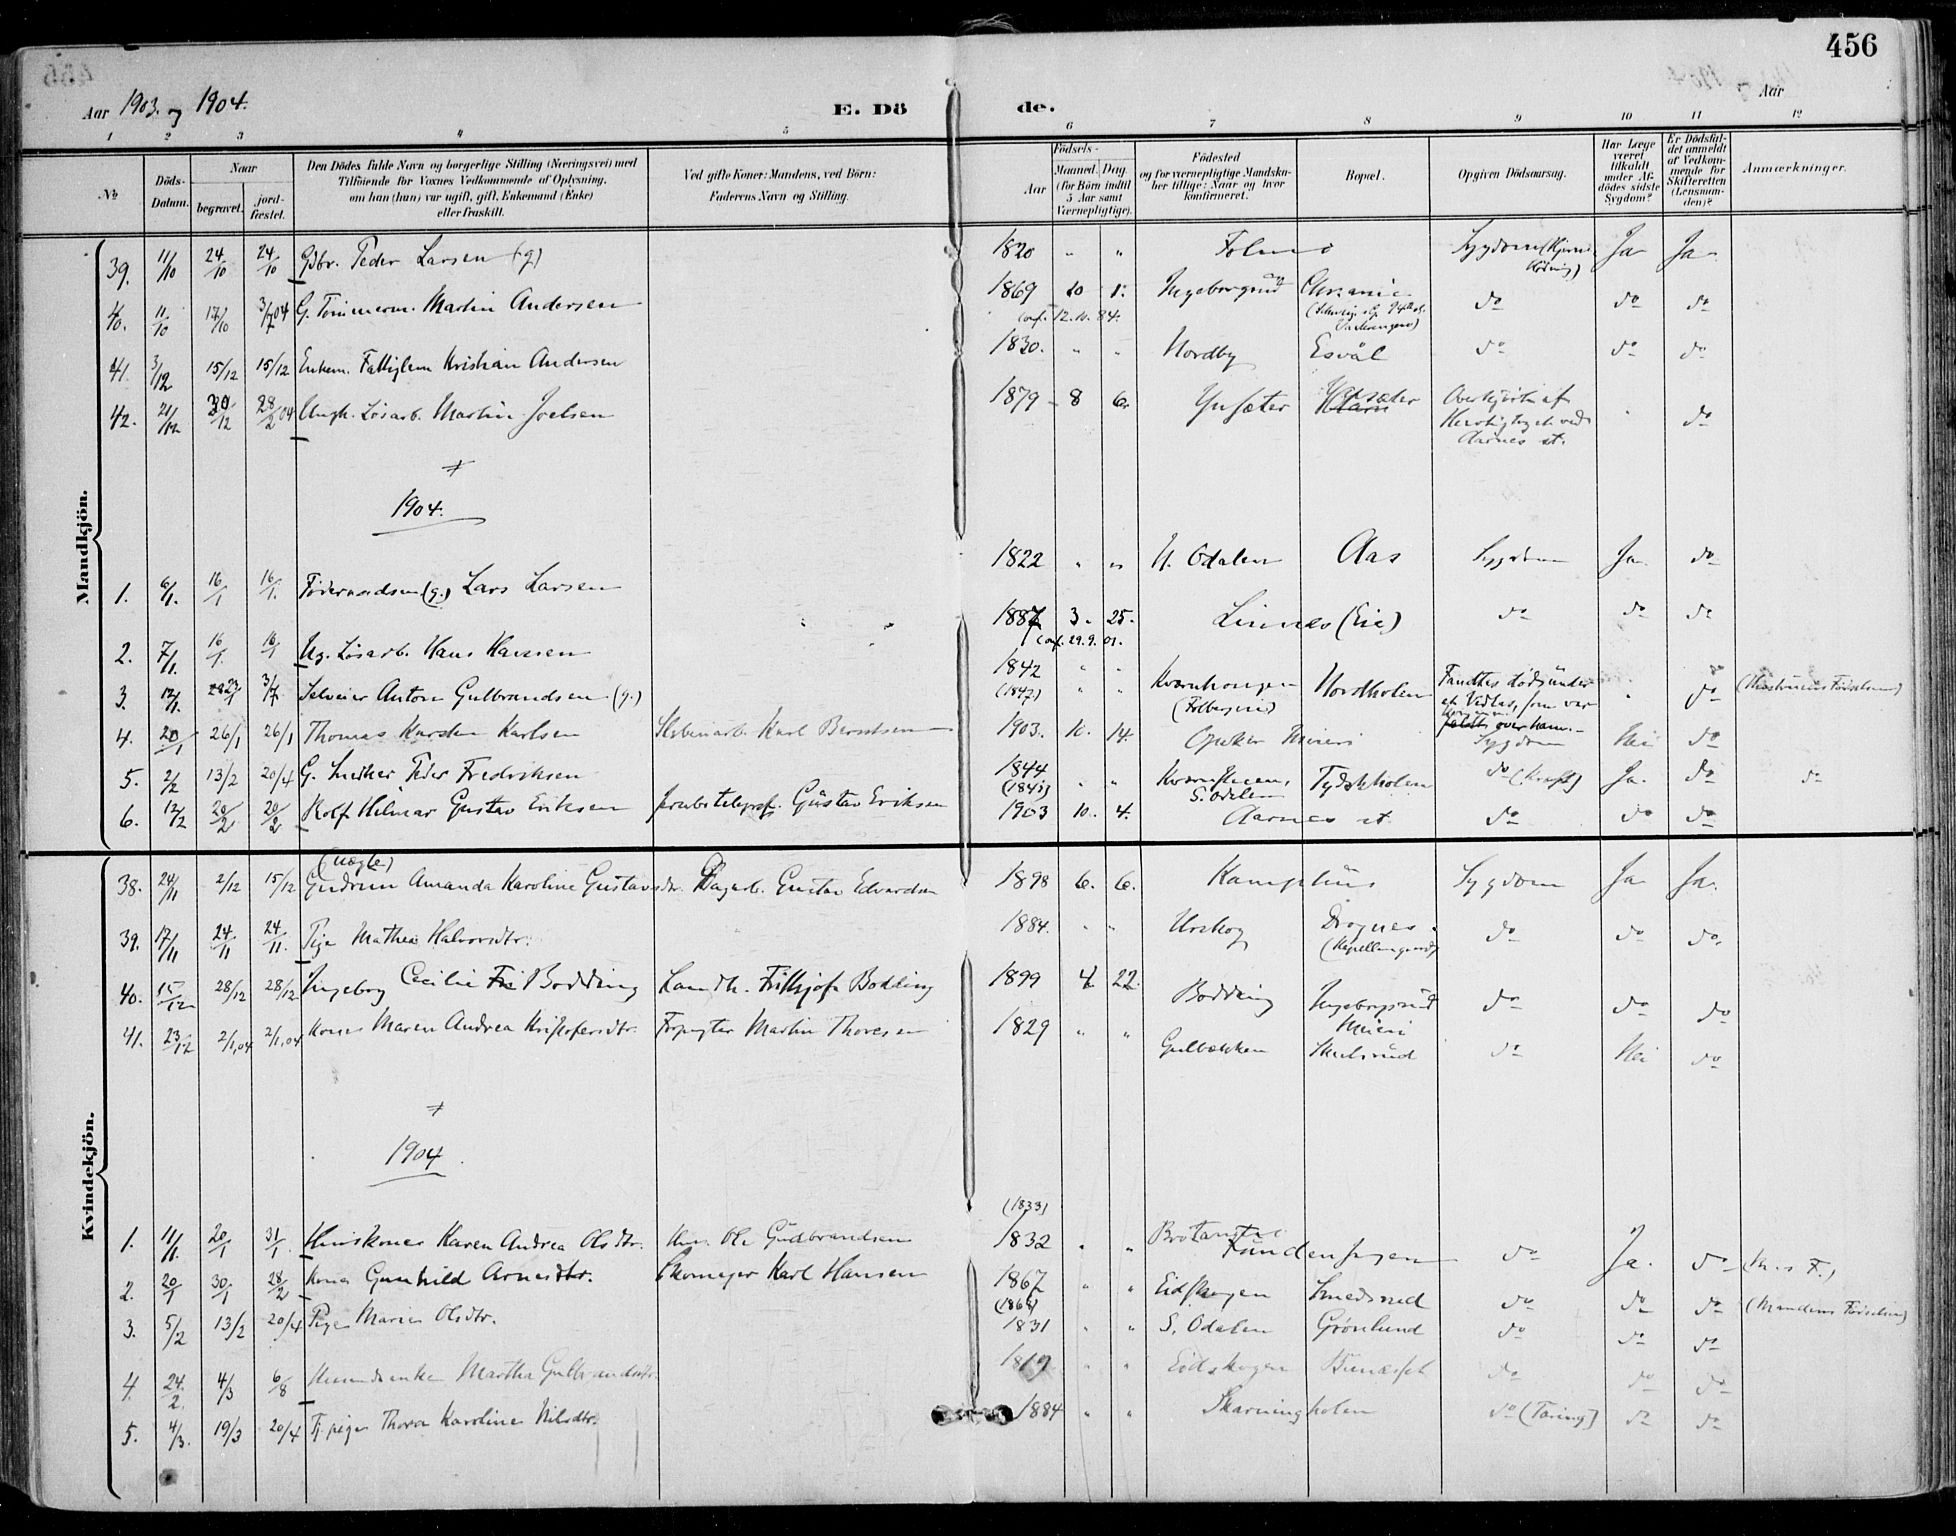 456
Aar 1903. og 1904.
E. Döde.
Aar
1 2 3 4 5 6 7 8 9 10 11 12
No
Döds-Datum.
Naar
begravet.
jord-fæstet.
Den Dödes fulde Navn og borgerlige Stilling (Næringsvei) med
Tilföiende for Voxnes Vedkommende af Oplysning,
om han (hun) var ugift, gift, Enkemand (Enke)
eller fraskilt.
Ved gifte Koner: Mandens, ved Börn:
Faderens Navn og Stilling.
Födsels-
Aar
Maaned. Dag.
(for Börn indtil
5 Aar samt
Værnepligtige).
Födested
og for værnepligtige Mandska-
ber tillige: Naar og hvor
konfirmeret.
Bopæl.
Opgiven Dödsaarsag.
Har Læge
været
tilkaldt
under Af-
dödes sidste
Sygdom?
Er Dödsfal-
det anmeldt
af Vedkom-
mende for
Skifteretten
(Lensman-
den)?
Anmærkninger.
Mandkjön.
39. 11/10 24/10 24/10 Gbr. Peder Larsen (g) 1820 " " Ja Ja
40. 11/10 17/10 3/7 04 G. Tømmerm. Martin Andersen 1869 10 1. Ingeborgrud do do do
conf. 12.10.84.
41. 3/12 15/12 15/12 Enkem. Fattiglem Kristian Andersen 1830. " " Nordby Esvål do do do
42. 21/12 30/12 28/2 04 Ungk. Løsarb. Martin Joelsen 1879 8 6. Ynsæter Ynsæter Overkjørt af
Hurtigtoget ved
Aarnes st. do
1904.
1. 6/1. 16/1 16/1. Føderaadsm (g.) Lars Larsen 1822 " " N. Odalen Aas Sygdom Ja do
2. 7/1. 16/1. 16/1 Ug. Løsarb. Hans Hansen 1887 3. 25. Linnes (Eie) do do do
conf. 29.9.01.
3. 12/1. 23/1 3/7 Selveier Anton Gulbrandsen (g.) 1842 (1847) " " Nordholen Fandtes død under
et Vedlas, som var
over ham. do
4. 20/1 26/1 26/1 Thomas Karsten Karlsen Karl Berntsen 1903. 10. 14. Sygdom Nei do
5. 2/2 13/2 20/4 G. Smed Peder Fredriksen 1844 " " S. Odalen Tydskholen do (Kræft) Ja. do do
6. 12/2 20/2 20/2 Rolf Hilmar Gustav Eriksen Gustav Eriksen 1903 10. 4. Aarnes st do do do
Kvindekjön.
38. 24/11 2/12 15/12 (uægte) Gudrun Amanda Karoline Gustavsdtr. Dagarb. Gustav Edvardsen 1898 6. 6. Kamphus Sygdom Ja Ja.
39. 17/11 24/11 24/11. Pige Mathea Halvorsdtr. 1884. " " Urskog Drognes (Kapellangaard) do do do.
40. 15/12 28/12 28/12 Ingeborg Cecilie Bodding Landh. Frithjof Bodding 1899 4 22. Bodding Ingeborgrud
Meieri do do do
41. 23/12 2/1,04 2/1,04 Kone Maren Andrea Kristofersdtr. Forpagter Martin Thoresen 1829 " " Gulbækken Skulsrud do Nei do
1904
(1833)
1. 11/1. 20/1 31/1. Huuskone Karen Andrea Olsdtr. Hm. Ole Gudbrandsen 1832 " " Funden do Ja. do
2. 20/1 30/1 28/2 Kone Gunhild Arnesdtr. Skomager Karl Hansen 1867 " " Eidskogen Smedsrud do do do (Mandens Forseelse)
3. 5/2 13/2 20/4 Pige Marie Olsdtr. 1831 " " S. Odalen Grønlund do do do
4. 24/2. 4/3 6/8 Huusmandsenke Martha Gulbrandsdtr. 1819 " " Eidskogen do do do
5. 4/3. 19/3 20/4 Tj. pige Thora Karoline Nilsdtr. 1884 " " Skarningholen do (Tæring) do do